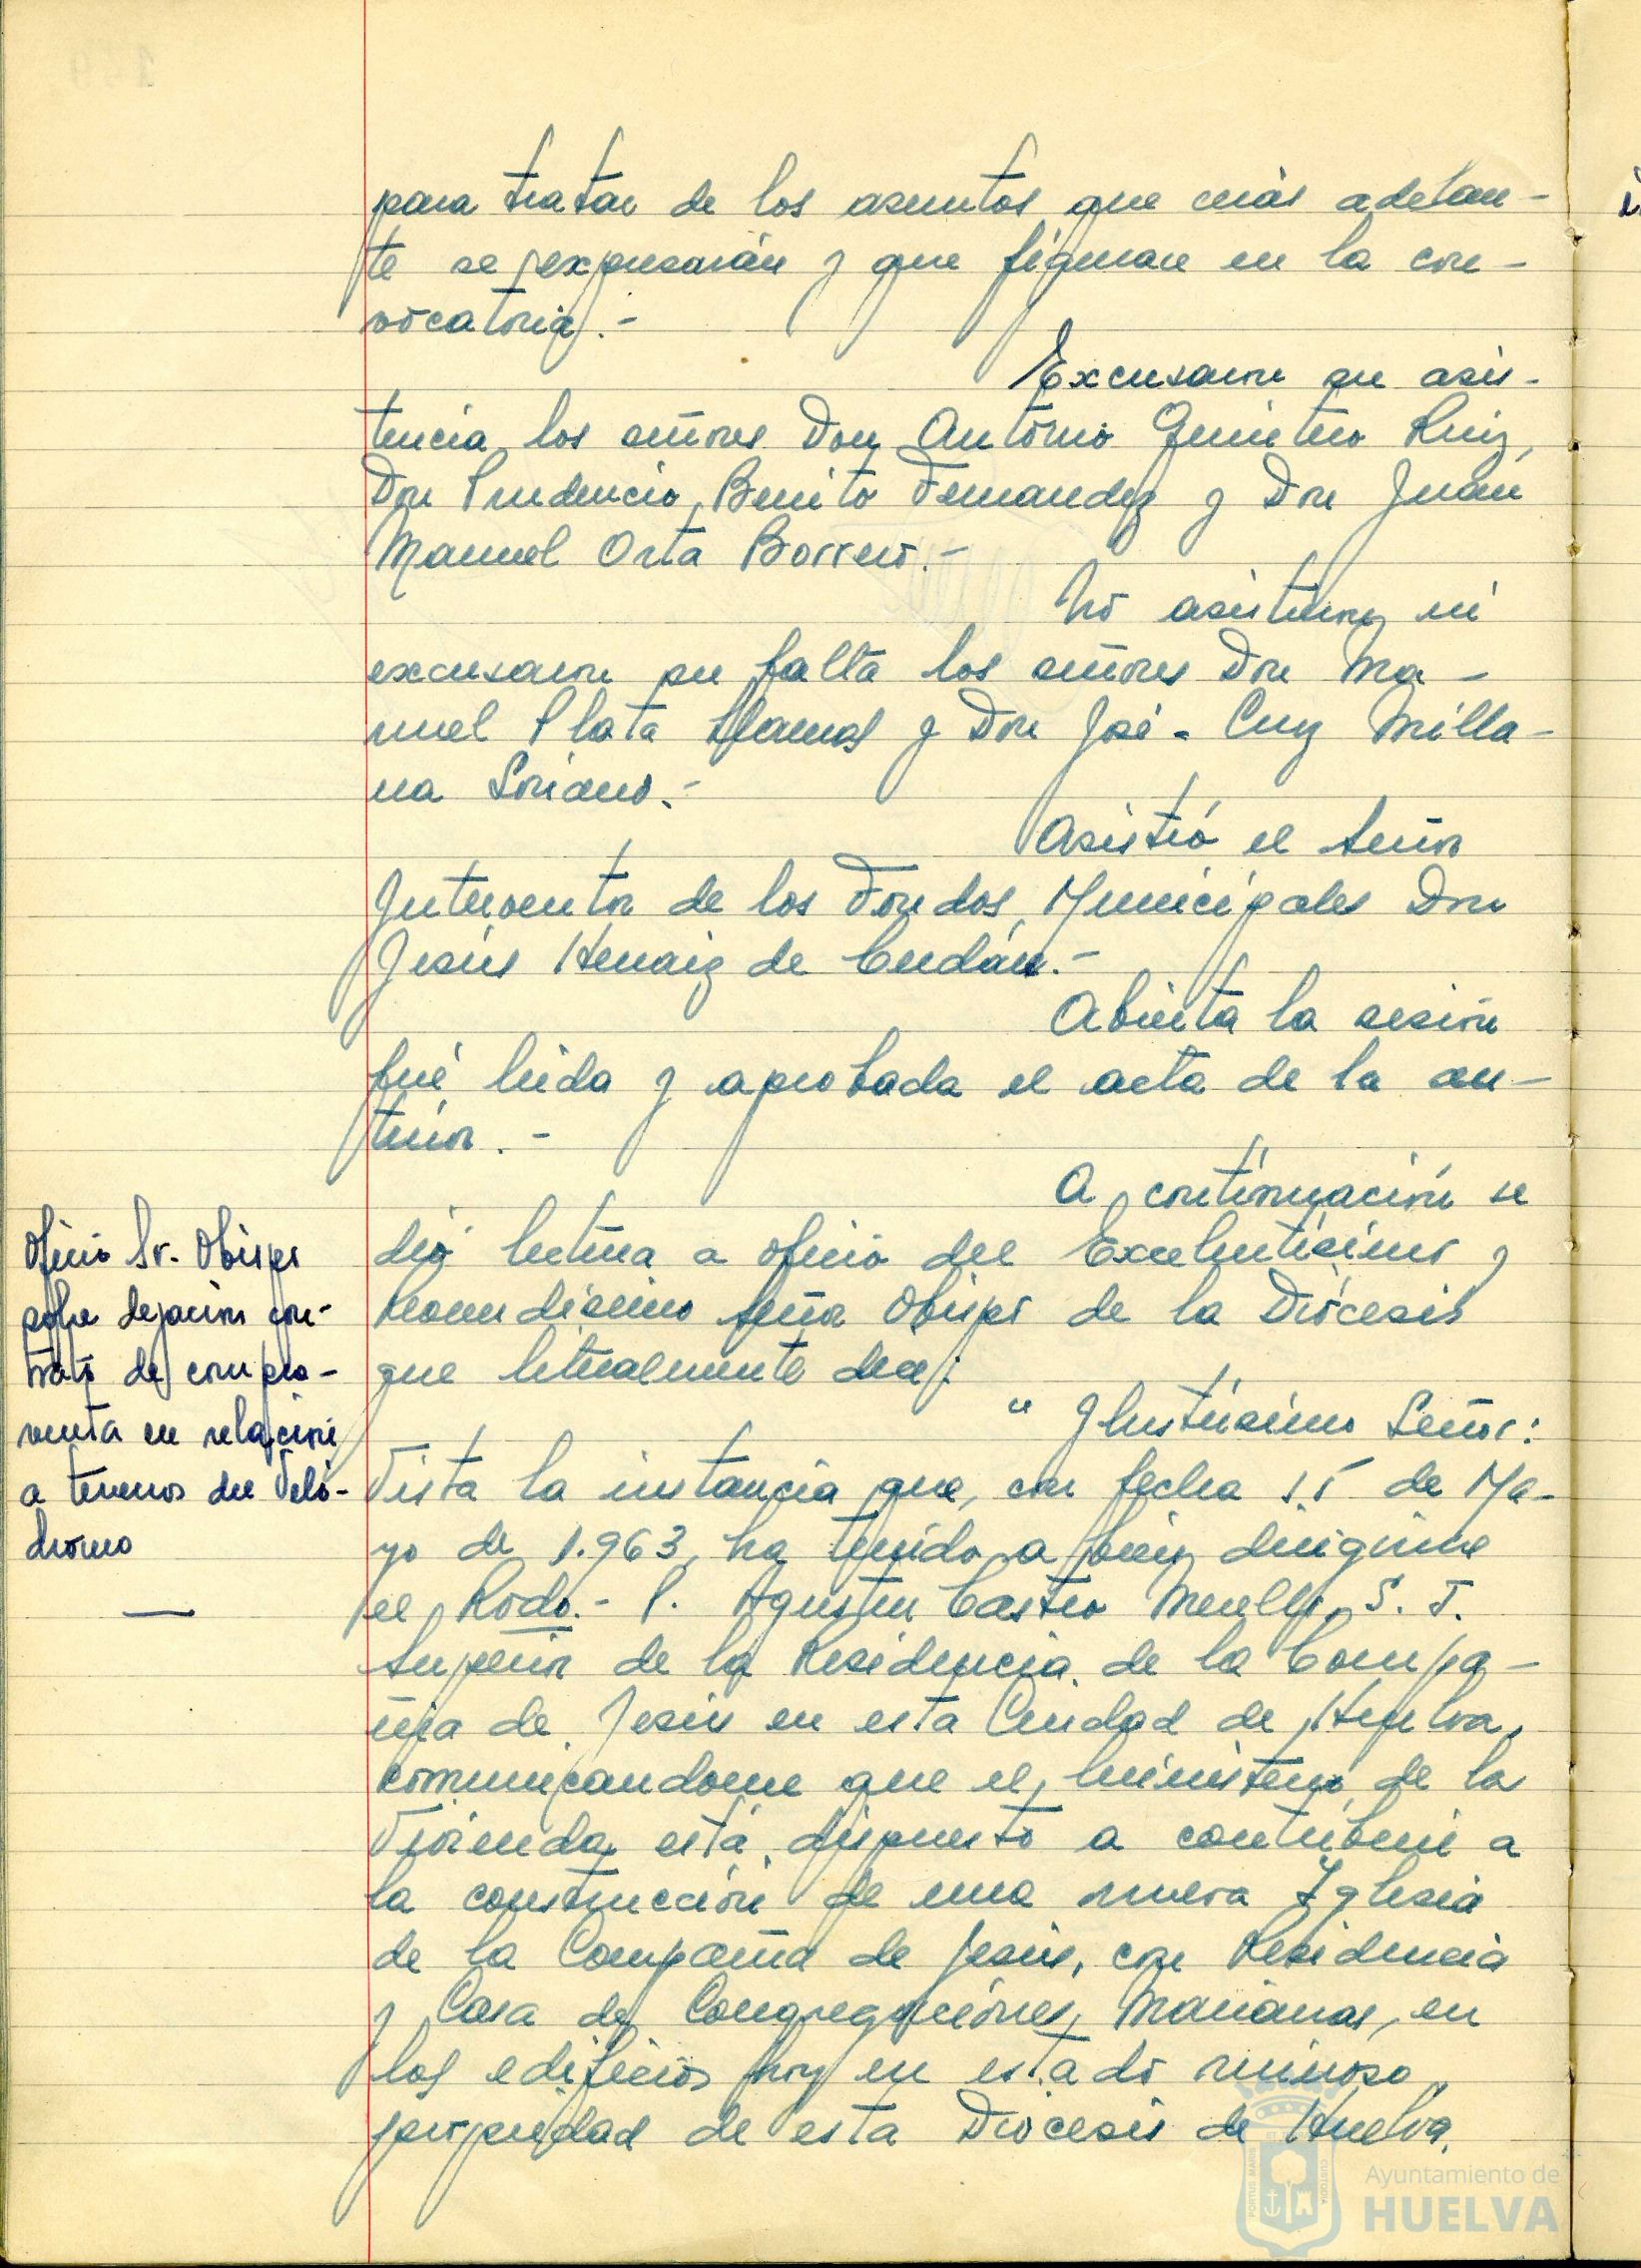 para tratar de los asuntos que más adelan-
te se expresarán y que figuran en la con-
vocatoria.-
Excusaron su asis-
tencia los señores Don Antonio Quintero Ruiz,
Don Prudencio Benito Fernandez y Don Juan
Manuel Orta Borrero.-
No asistieron ni
excusaron su falta los señores Don Ma-
nuel Plata Llamas y Don José-Cruz Milla-
na Soriano.-
Asistió el Señor
Interventor de los Fondos Municipales Don
Jesús Henaiz de
Abierta la sesión
fué leida y aprobada el acta de la an-
terior.-
A continuación se
dió lectura a oficio del Excelentísimo y
Reverendísimo Señor Obispo de la Diócesis
que literalmente dice:
Oficio Sr. Obispo
sobre dejación con-
trato de compra-
venta en relación
a terrenos del Veló-
dromo
" Ilustrísimo Señor:
Vista la instancia que, con fecha 15 de Ma-
yo de 1.963, ha tenido a bien dirigirme
el Rvdo.- P. Agustín Castro S. J.
Superior de la Residencia de la Compa-
ñia de Jesús en esta Ciudad de Huelva,
comunicandome que el Ministerio de la
Vivienda está dispuesto a contribuir a
la construcción de una nueva Iglesia
de la Compañia de Jesús, con Residencia
y Casa de Congregaciones Marianas, en
los edificios hoy en estado ruinoso,
propiedad de esta Diocesis de Huelva.
Ayuntamiento de
HUELVA